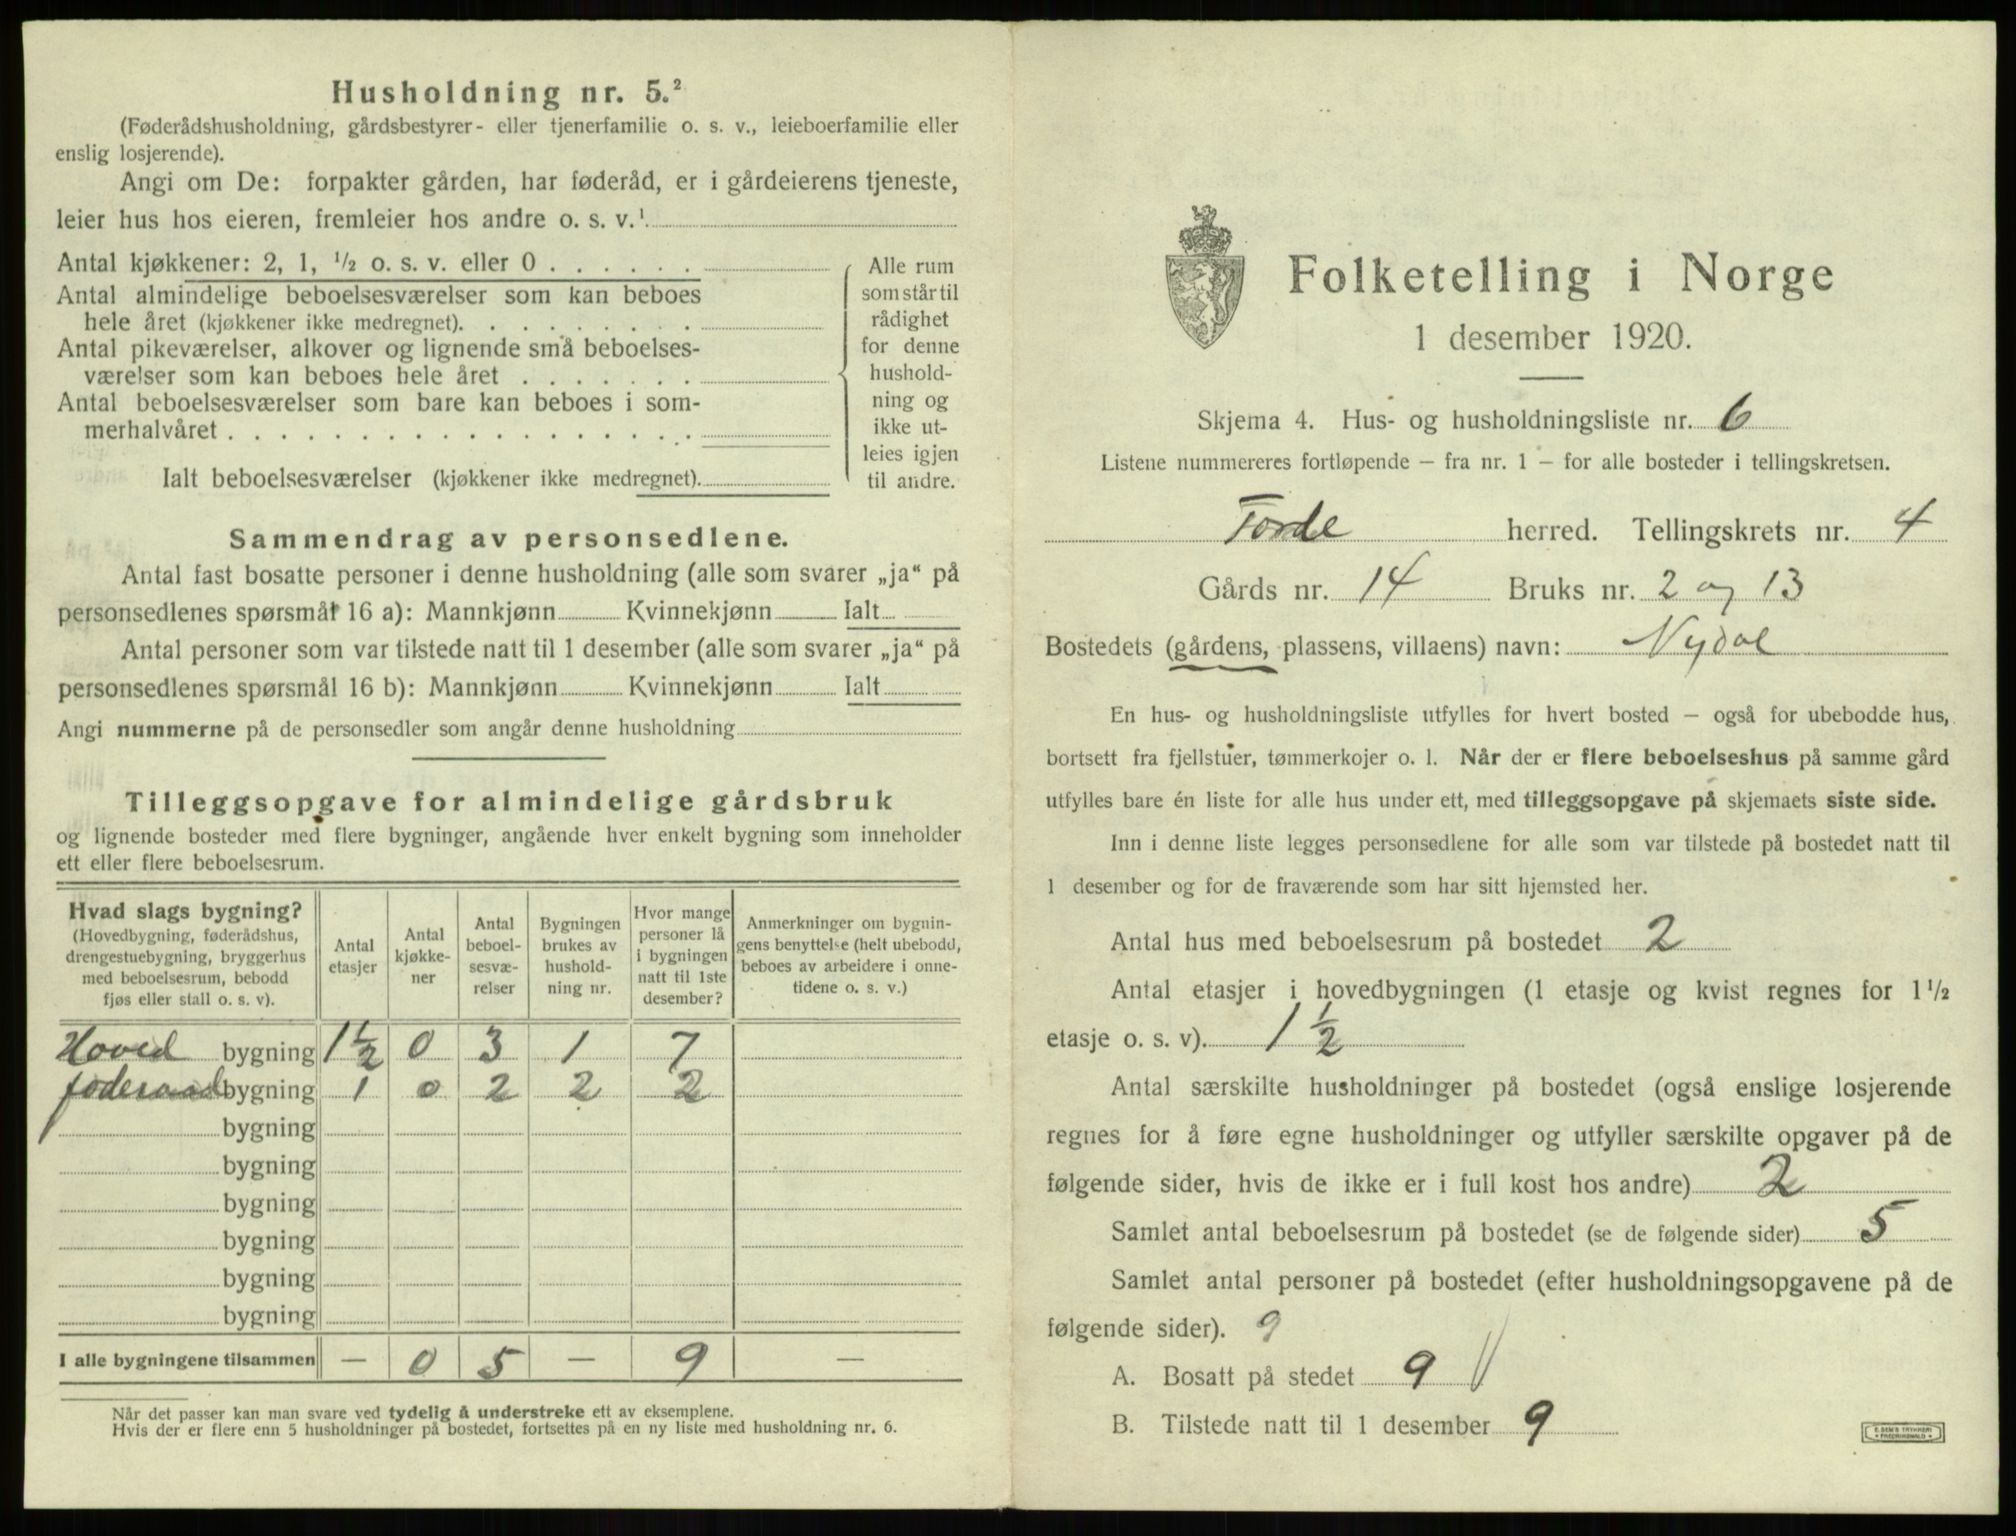 Husholdning nr. 5.²
(Føderådshusholdning, gårdsbestyrer- eller tjenerfamilie o. s. v., leieboerfamilie eller
enslig losjerende).
Angi om De: forpakter gården, har føderåd, er i gårdeierens tjeneste,
leier hus hos eieren, fremleier hos andre o. s. v.¹
Antal kjøkkener: 2, 1, ½ o. s. v. eller 0
Antal almindelige beboelsesværelser som kan beboes
hele året (kjøkkener ikke medregnet).
Antal pikeværelser, alkover og lignende små beboelses-
værelser som kan beboes hele året
Antal beboelsesværelser som bare kan beboes i som-
merhalvåret
Ialt beboelsesværelser (kjøkkener ikke medregnet).
Alle rum
som står til
rådighet
for denne
hushold-
ning og
ikke ut-
leies igjen
til andre.
Sammendrag av personsedlene.
Antal fast bosatte personer i denne husholdning (alle som svarer „ja“ på
personsedlenes spørsmål 16 a): Mannkjønn Kvinnekjønn Ialt
Antal personer som var tilstede natt til 1 desember (alle som svarer „ja“ på
personsedlenes spørsmål 16 b): Mannkjønn Kvinnekjønn Ialt
Angi nummerne på de personsedler som angår denne husholdning
Tilleggsopgave for almindelige gårdsbruk
og lignende bosteder med flere bygninger, angående hver enkelt bygning som inneholder
ett eller flere beboelsesrum.
Hvad slags bygning?
(Hovedbygning, føderådshus,
drengestuebygning, bryggerhus
med beboelsesrum, bebodd
fjøs eller stall o. s. v).
Antal
etasjer
Antal
kjøkke-
ner
Antal
beboel-
sesvæ-
relser
Bygningen
brukes av
hushold-
ning nr.
Hvor mange
personer lå
i bygningen
natt til 1ste
desember?
Anmerkninger om bygnin-
gens benyttelse (helt ubebodd,
beboes av arbeidere i onne-
tidene o. s. v.)
Hoved bygning 1½ 0 3 1 7
føderaad bygning 1 0 2 2 2
bygning
bygning
bygning
bygning
bygning
bygning
I alle bygningene tilsammen — 0 5 — 9 —
Når det passer kan man svare ved tydelig å understreke ett av eksemplene.
Hvis der er flere enn 5 husholdninger på bostedet, fortsettes på en ny liste med husholdning nr. 6.
Folketelling i Norge
1 desember 1920.
Skjema 4. Hus- og husholdningsliste nr. 6
Listene nummereres fortløpende — fra nr. 1 — for alle bosteder i tellingskretsen.
Førde herred. Tellingskrets nr. 4
Gårds nr. 14 Bruks nr. 2 og 13
Bostedets (gårdens, plassens, villaens) navn: Nydal
En hus- og husholdningsliste utfylles for hvert bosted — også for ubebodde hus,
bortsett fra fjellstuer, tømmerkojer o. l. Når der er flere beboelseshus på samme gård
utfylles bare én liste for alle hus under ett, med tilleggsopgave på skjemaets siste side.
Inn i denne liste legges personsedlene for alle som var tilstede på bostedet natt til
1 desember og for de fraværende som har sitt hjemsted her.
Antal hus med beboelsesrum på bostedet 2
Antal etasjer i hovedbygningen (1 etasje og kvist regnes for 1½
etasje o. s. v). 1½
Antal særskilte husholdninger på bostedet (også enslige losjerende
regnes for å føre egne husholdninger og utfyller særskilte opgaver på de
følgende sider, hvis de ikke er i full kost hos andre) 2
Samlet antal beboelsesrum på bostedet (se de følgende sider) 5
Samlet antal personer på bostedet (efter husholdningsopgavene på de
følgende sider). 9
A. Bosatt på stedet 9
B. Tilstede natt til 1 desember 9
E. SEM'S TRYKKERI
FREDRIKSHALD